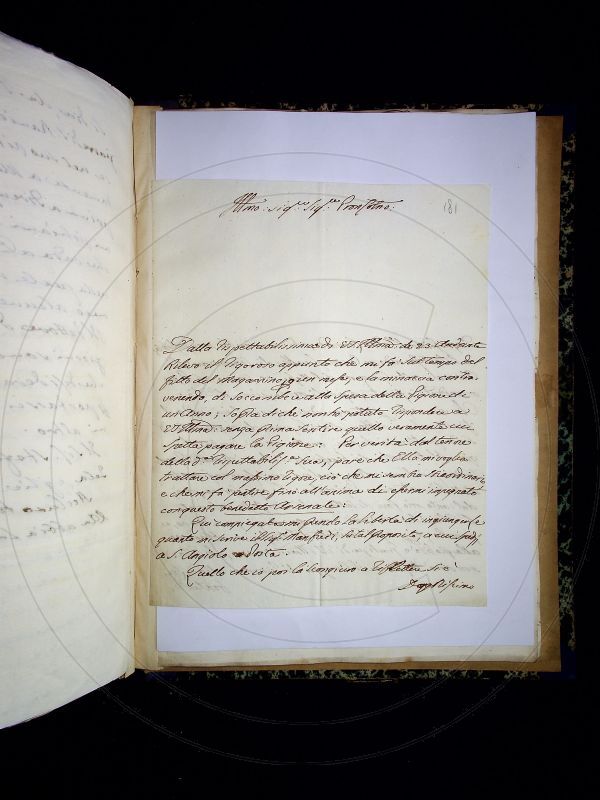 Illmo: Sig.re Sig.re Pron Colmo:
181
Dalla Rispettabilissima di VS Illma de 23 Andante
Rilevo il rigoroso appunto che mi fa sul tempo del
fitto del Magazzino, e la minaccia contra-
venendo, di soccombere alla spesa della Pigione di
un Anno; sopra di che non ho potuto rispondere a
VS Illma: senza prima sentire quello veramente cui
spetta pagare la Pigione: Per verità dal tenore
della d.a rispettabilis.a Sua, pare che Ella mi voglia
trattare col massimo rigore, ciò che mi sembra straordinario,
e che mi fa pentire fino all'anima di essermi impegnato
con questo benedetto Arsenale:
Qui compiegata mi prendo la libertà di
quanto mi scrive il Sig.r Manfredi, sotal Proposito, a cui
a S. Angiolo
Quello che io poi la scongiuro a riflettere si è